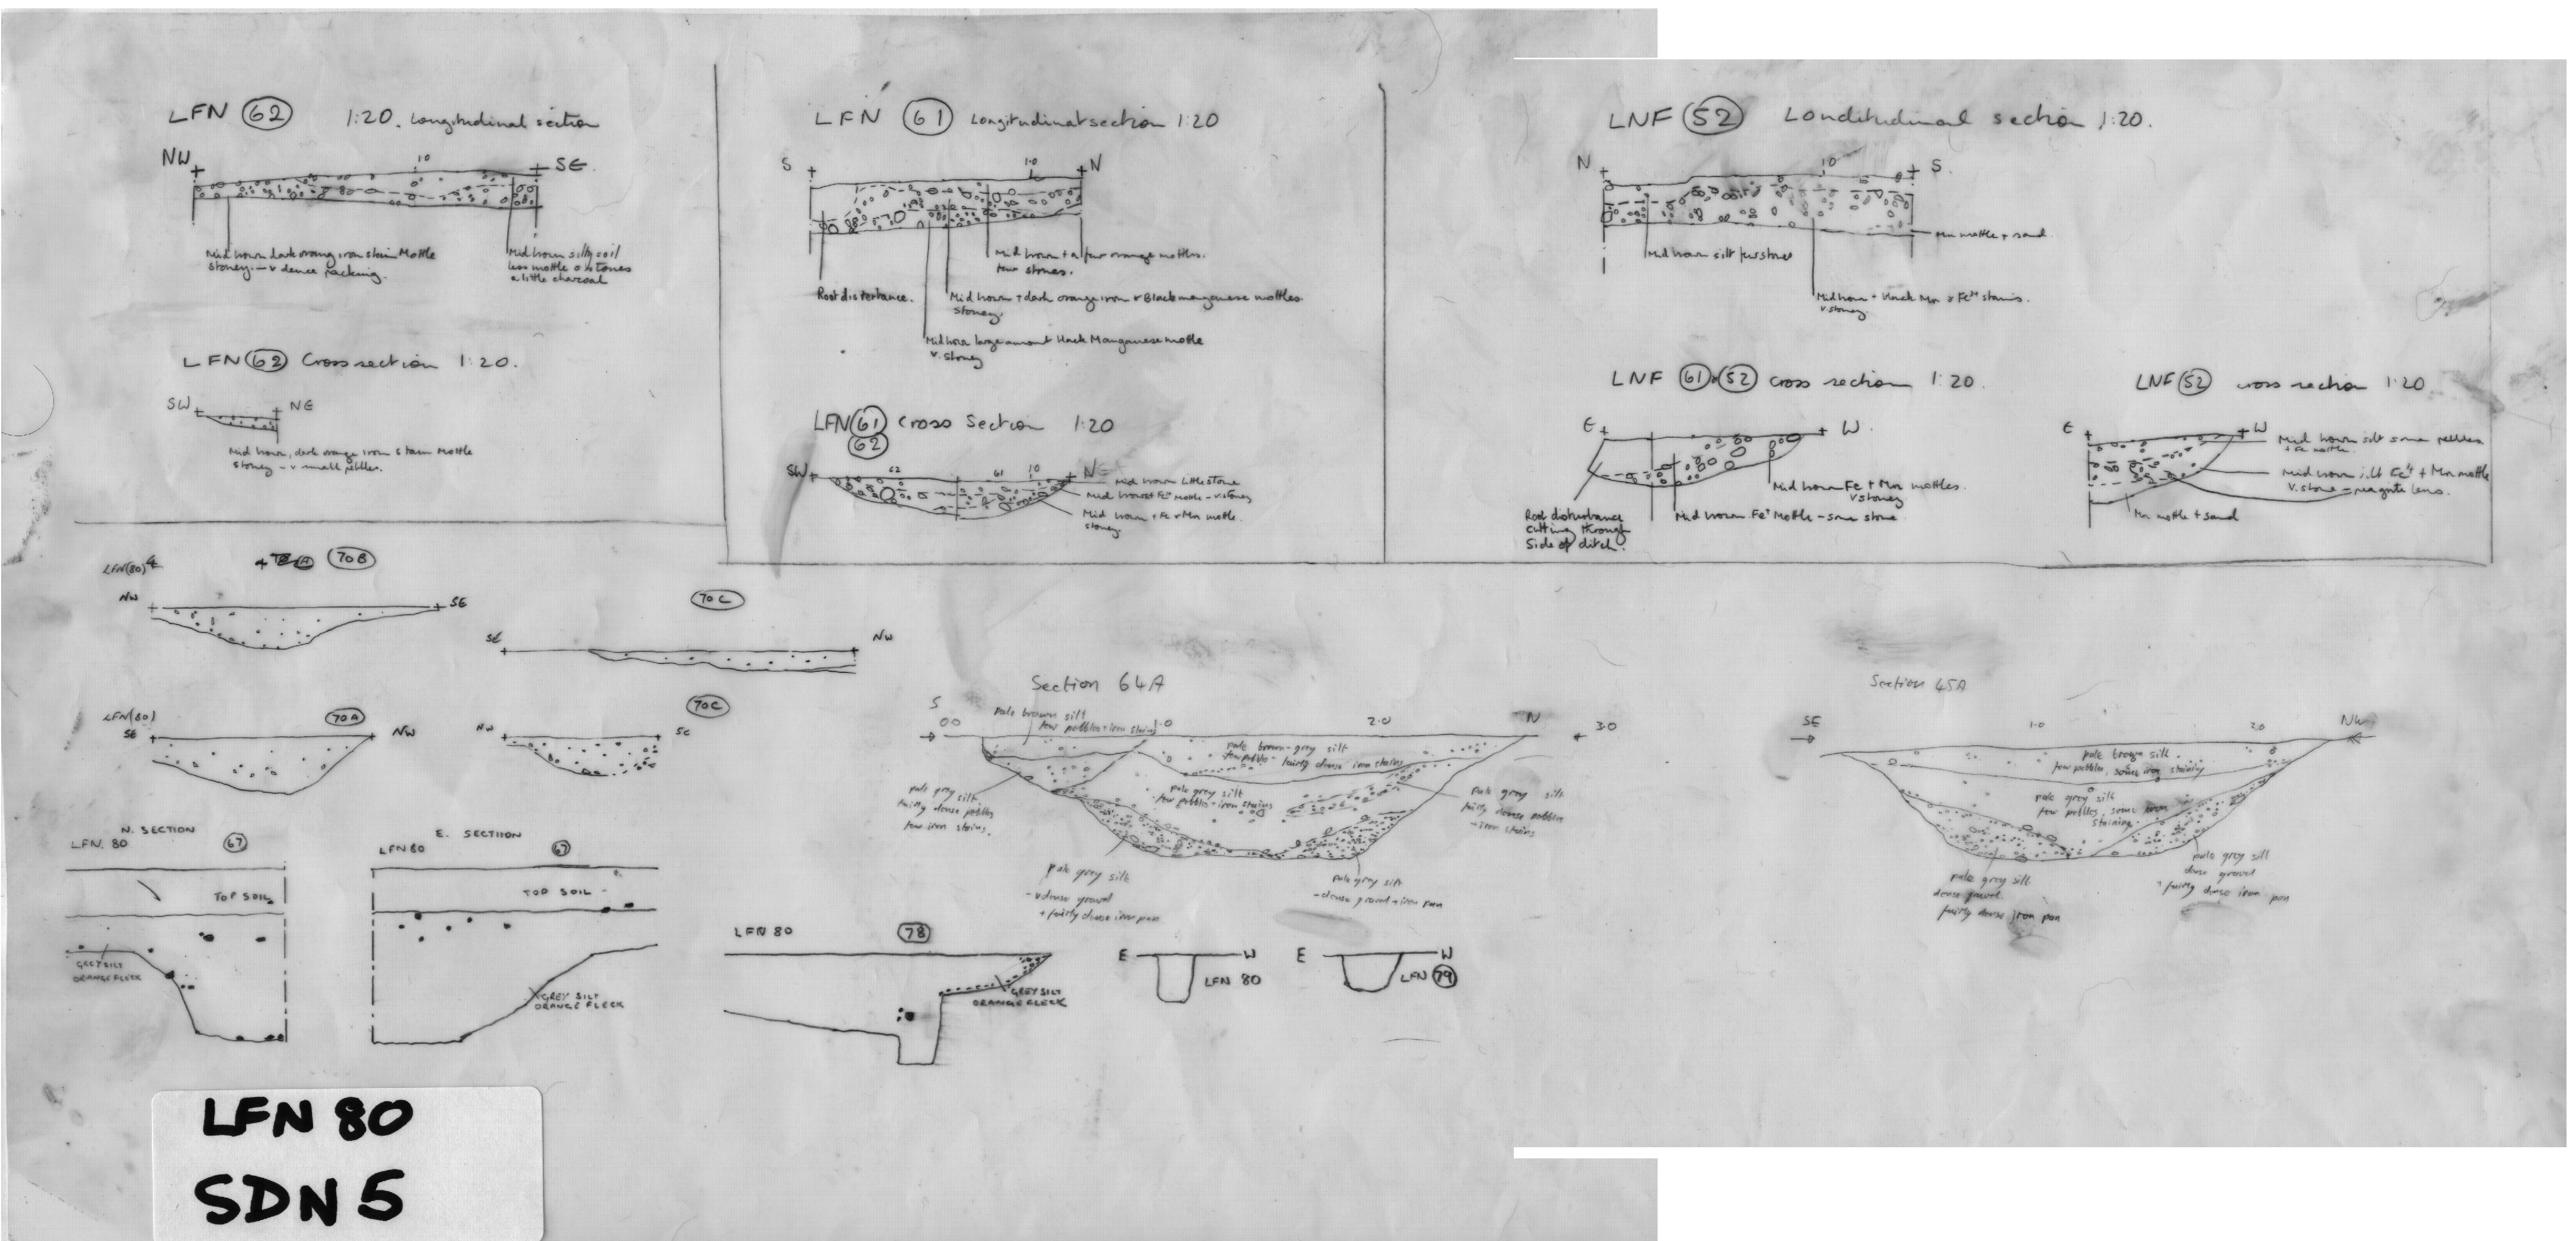 LFN 62 1:20. Longitudinal section
NW
10
SE
Mid brown dark orang iron stain Mottle
stoney - v dence packing.
Mid brown silty soil
less mottle & stones
a little charcoal
LFN 62 Cross section 1:20.
SW
NE
Mid brown, dark orange iron stain Mottle
stoney - v small pebbles.
LFN 61 Longitudinal section 1:20
S
1.0
N
Mid brown + a few orange mottles.
few stones.
Root disterbance.
Mid brown + dark orange iron & Black manganese mottles
stoney.
Mid brown large amount black Manganese mottle
v. stoney
LFN 61 Cross Section 1:20
62
SW
62
61
10
NE
Mid brown little stone
Mid brown Fe mottle - v. stoney
Mid brown + Fe + Mn mottle.
stoney.
LNF 52 Londitudinal section 1:20.
N
10
S.
Mn mottle + sand
Mid brown silt few stones
Mid brown + black Mn & Fe stains.
v. stoney
LNF 61 & 52 cross section 1:20.
E
W.
Mid brown Fe + Mn mottles.
v stoney
Root disturbance
cutting through
side of ditch.
Mid brown Fe Mottle - some stone
LNF 52 cross section 1:20
E
W
Mid brown silt some pebbles
+ Fe mottle.
Mid brown silt Fe + Mn mottle
v. stone - lens.
Mn mottle + sand
LFN(80)
70B
NW
SE
70C
SE
NW
LFN(80)
70A
SE
NW
70C
NW
SE
N. SECTION
LFN. 80
67
TOP SOIL
GREY SILT
ORANGE FLECK
E. SECTIION
LFN 80
67
TOP SOIL
GREY SILT
ORANGE FLECK
LFN 80
78
GREY SILT
ORANGE FLECK
E
W
LFN 80
E
W
LFN 79
Section 64A
S
0.0
1.0
2.0
N
3.0
pale brown silt
few pebbles + iron stains
pale brown-grey silt
few pebbles - fairly dense iron stains
pale grey silt
few pebbles + iron stains
pale grey silt,
fairly dense pebbles
few iron stains.
pale grey silt
fairly dense pebbles
- iron stains
pale grey silt
- v dense gravel
+ fairly dense iron pan
pale grey silt
- dense gravel + iron pan
Section 45A
SE
1.0
2.0
NW
pale brown silt
few pebbles, some iron staining
pale grey silt
few pebbles, some iron
staining
pale grey silt
dense gravel
fairly dense iron pan
pale grey silt
dense gravel
+ fairly dense iron pan
LFN 80
SDN 5